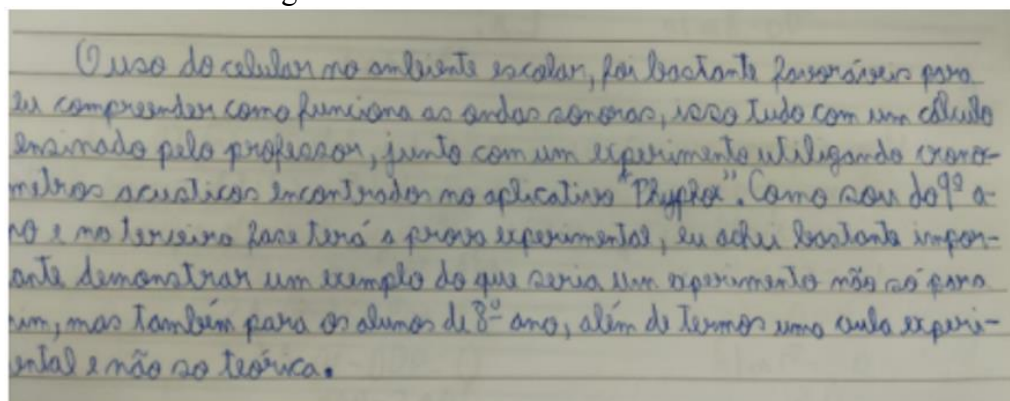 O uso do celular no ambiente escolar, foi bastante favoráveis para
eu compreender como funciona as ondas sonoras, isso tudo com um cálculo
ensinado pelo professor, junto com um experimento utilizando crono-
metros acusticos encontrados no aplicativo "Phyphox". Como sou do 9º a-
no e na terceira fase terá a prova experimental, eu achei bastante impor-
ante demonstrar um exemplo do que seria um experimento não só para
mim, mas também para os alunos de 8º ano, além de termos uma aula experi-
ental e não so teórica.